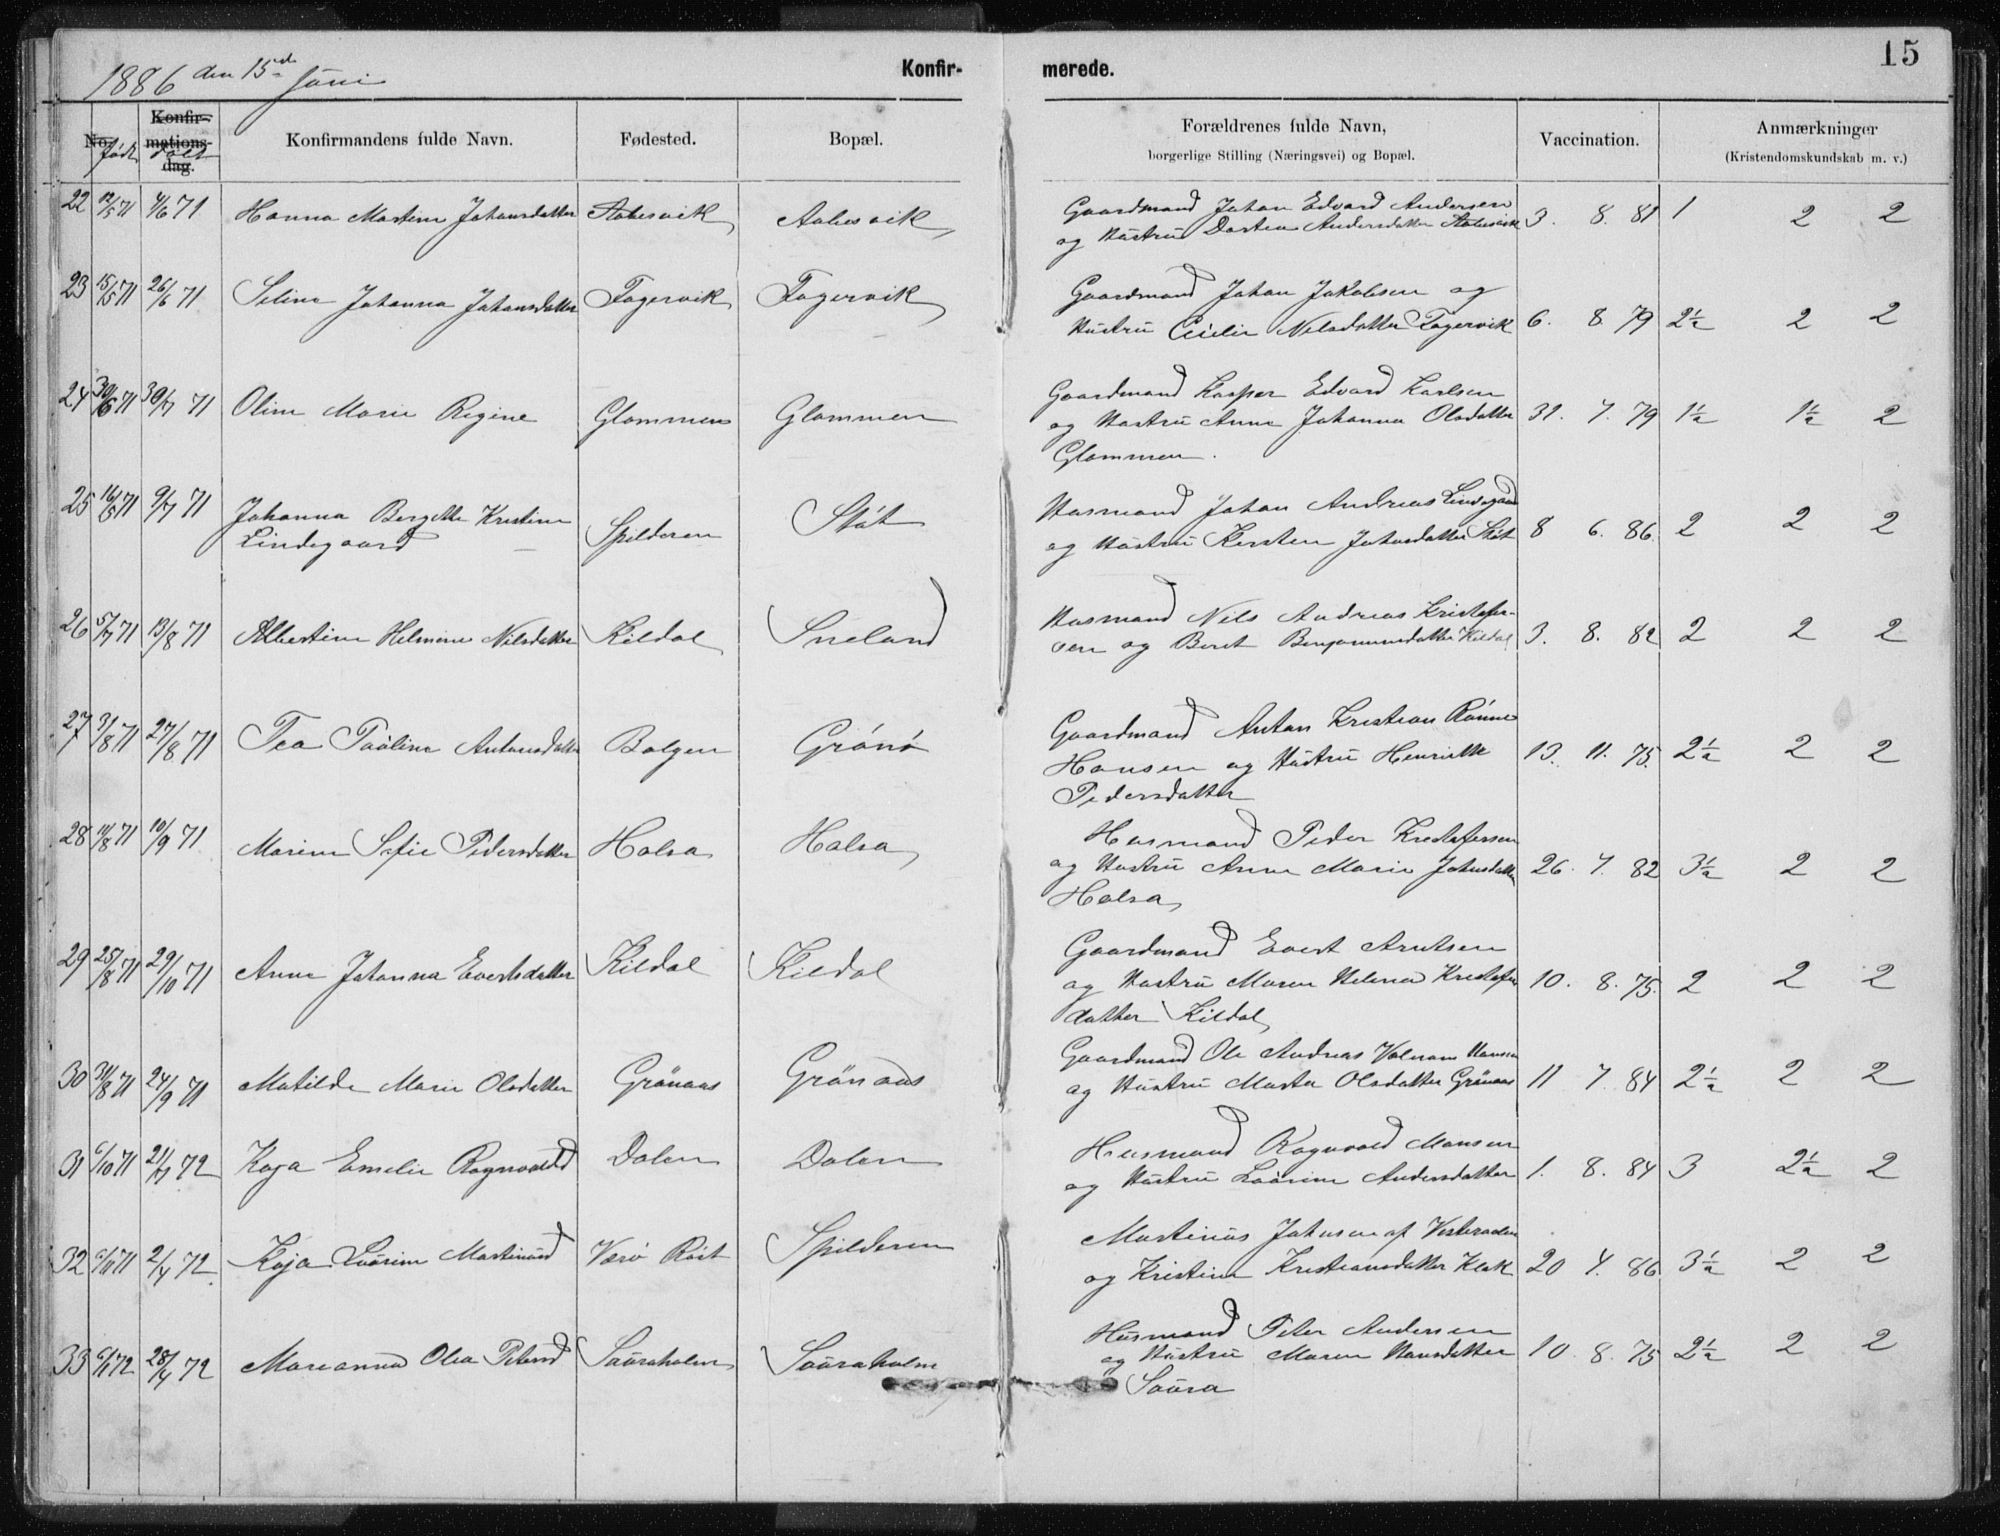 1886 den 15de Juni
Konfir- merede. 15
No. født Konfir-mations-dag. døbt Konfirmandens fulde Navn. Fødested. Bopæl. Forældrenes fulde Navn, borgerlige Stilling (Næringsvei) og Bopæl. Vaccination. Anmærkninger (Kristendomskundskab m. v.)
22 12/5 71 4/6 71 Hanna Martine Johansdatter Aabesvik Aabesvik Gaardmand Johan Edvard Andersen 3. 8. 81 1 2 2
og Hustru Dortea Andersdatter Aabesvik
23 15/5 71 26/6 71 Seline Johanna Johansdatter Fagervik Fagervik Gaardmand Johan Jakobsen og
Hustru Cecilie Nilsdatter Fagervik 6. 8. 79 2½ 2 2
24 30/6 71 30/7 71 Oline Marie Regine Glommen Glommen Gaardmand Kasper Edvard Karlsen
og Hustru Anne Johanna Olsdatter 31. 7. 79 1½ 1½ 2
Glommen.
25 16/5 71 9/7 71 Johanna Bergette Kristine Spilderen Støt Husmand Johan Andreas Lindegaard
Lindegaard og Hustru Kirsten Johansdatter Støt 8 6. 86. 2 2 2
26 5/7 71 13/8 71 Albertine Helmine Nilsdatter Kildal Sneland Husmand Nils Andreas Kristofer-
sen og Beret Benjaminsdatter Kildal 3. 8. 82 2 2 2
27 3/8 71 27/8 71 Tea Paüline Antonsdatter Bolgen Grønø Gaardmand Anton Kristian Rønne
Hansen og Hustru Henrikke 13. 11. 75. 2½ 2 2
Pedersdatter
28 11/8 71 10/9 71 Marine Sofie Pedersdatter Halsa Halsa Husmand Peder Kristofersen
og Hustru Anne Marie Johnsdatter 26. 7. 82 3½ 2 2
Halsa
29 25/8 71 29/10 71 Anne Johanna Evertsdatter Kildal Kildal Gaardmand Evert Arntsen
og Hustru Maren Helena Kristofer 10. 8. 75. 2 2 2
datter Kildal
30 31/8 71 24/9 71 Matilde Marie Olsdatter Grönaas Grönaas Gaardmand Ole Andreas Volnam Hansen
og Hustru Marta Olsdatter Grönaas 11 7 84 2½ 2 2
31 6/10 71 21/7 72 Kaja Emelie Ragnvaldsd Dalen Dalen Husmand Ragnvald Monsen
og Hustru Laürine Andersdatter 1. 8. 84 3 2½ 2
32 6/11 71 2/4 72 Kaja Laürine Martinüsd Værø Røst Spilderen Martinüs Johnsen af Vesteraalen
og Kristine Kristiansdatter Klak 20 4. 86 3½ 2 2
33 6/1 72 28/4 72 Mareanna Olea Petersd Saüraholm Saüraholm Husmand Peter Andersen
og Hustru Maren Hansdatter 10. 8. 75 2½ 2 2
Saüra